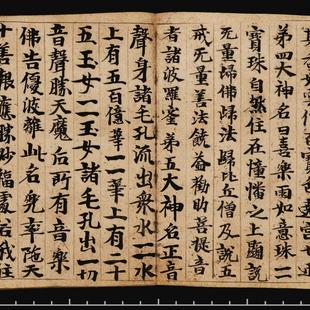 第四大神名曰喜樂雨如意珠一一
寶珠自然住在憧憣之上顯說
无量歸佛歸法歸比丘僧及說五
戒无量善法饒益勸助菩提音
者諸波羅蜜第五大神名正音
聲身諸毛孔流出衆水一一水
上有五百億華一一華上有二十
五玉女一一玉女諸毛孔出一切
音聲勝天魔后所有音樂
佛告優波離此名兜率陁天
十善報應勝妙福處若我住